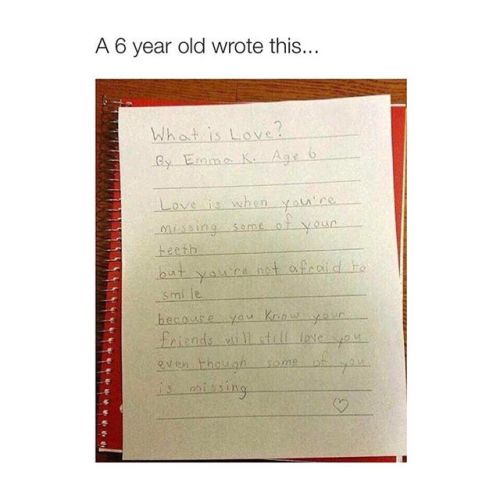 A 6 year old wrote this...
What is Love?
By Emma K. Age 6
Love is when you're
missing some of your
teeth
but you're not afraid to
smile
because you know your
friends will still love you
even though some of you
is missing